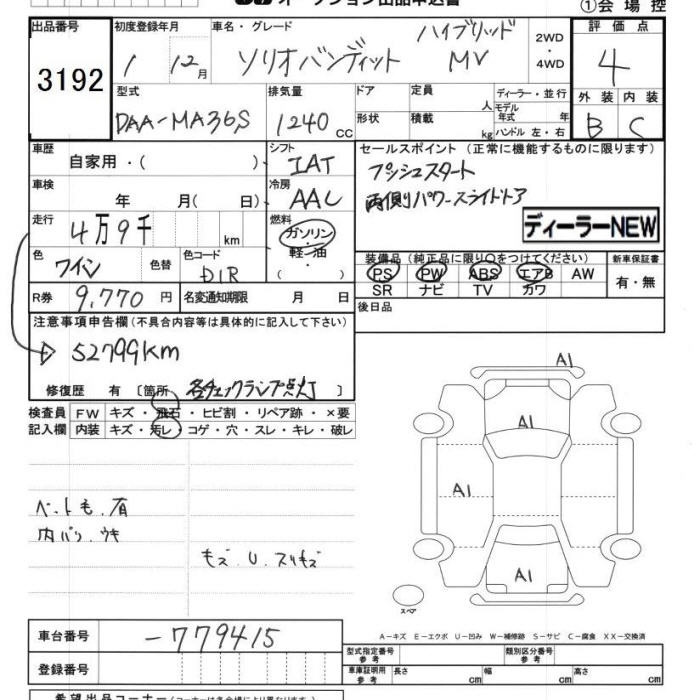 オークション出品申込書
①会場控
出品番号 初度登録年月 車名・グレード 評価点
3192
1 12月
ソリオバンディット ハイブリッド MV
2WD
・
4WD
4
外装 内装
B C
型式 排気量 ドア 定員 人 ディーラー・並行
DAA-MA36S 1240 CC
形状 積載 kg モデル年式 年
ハンドル 左・右
車歴 シフト セールスポイント (正常に機能するものに限ります)
自家用・( ) IAT
プッシュスタート
車検 冷房
年 月( 日) AAC
両側パワースライドドア
走行 燃料
4万9千 km ガソリン・軽油・( )
ディーラーNEW
色 色替 色コード
ワイン D1R
装備品(純正品に限り○をつけてください) 新車保証書
PS PW ABS エアB AW 有・無
SR ナビ TV カワ
R券 9,770円 名変通知期限 月 日
後日品
注意事項申告欄(不具合内容等は具体的に記入して下さい)
52799km
修復歴 有 〔箇所 各チェックランプ点灯 〕
検査員 FW キズ・飛石・ヒビ割・リペア跡・×要
記入欄 内装 キズ・汚レ・コゲ・穴・スレ・キレ・破レ
A1
A1
A1
A1
ペット毛.有
内バリ.ウキ
キズ.U.スリキズ
スペア
A-キズ E-エクボ U-凹み W-補修跡 S-サビ C-腐食 XX-交換済
車台番号 -779415
型式指定番号 参考 類別区分番号 参考
登録番号
車庫証明用 参考 長さ cm 幅 cm 高さ cm
希望出品コーナー